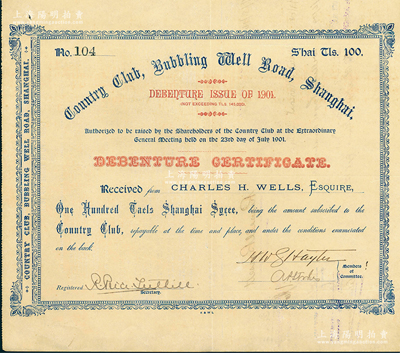 上海陽明拍賣
No. 104
S'hai Tls. 100.
Country Club, Bubbling Well Road, Shanghai.
DEBENTURE ISSUE OF 1901.
(NOT EXCEEDING TLS. 140,000)
Authorized to be raised by the Shareholders of the Country Club at the Extraordinary
General Meeting held on the 23rd day of July 1901.
DEBENTURE CERTIFICATE.
Received from CHARLES H. WELLS, ESQUIRE,
One Hundred Taels Shanghai Sycee, being the amount subscribed to the
Country Club, repayable at the time and place, and under the conditions enumerated
on the back.
Members
of
Committee.
Registered
Secretary.
COUNTRY CLUB, BUBBLING WELL ROAD, SHANGHAI.
上海陽明拍賣